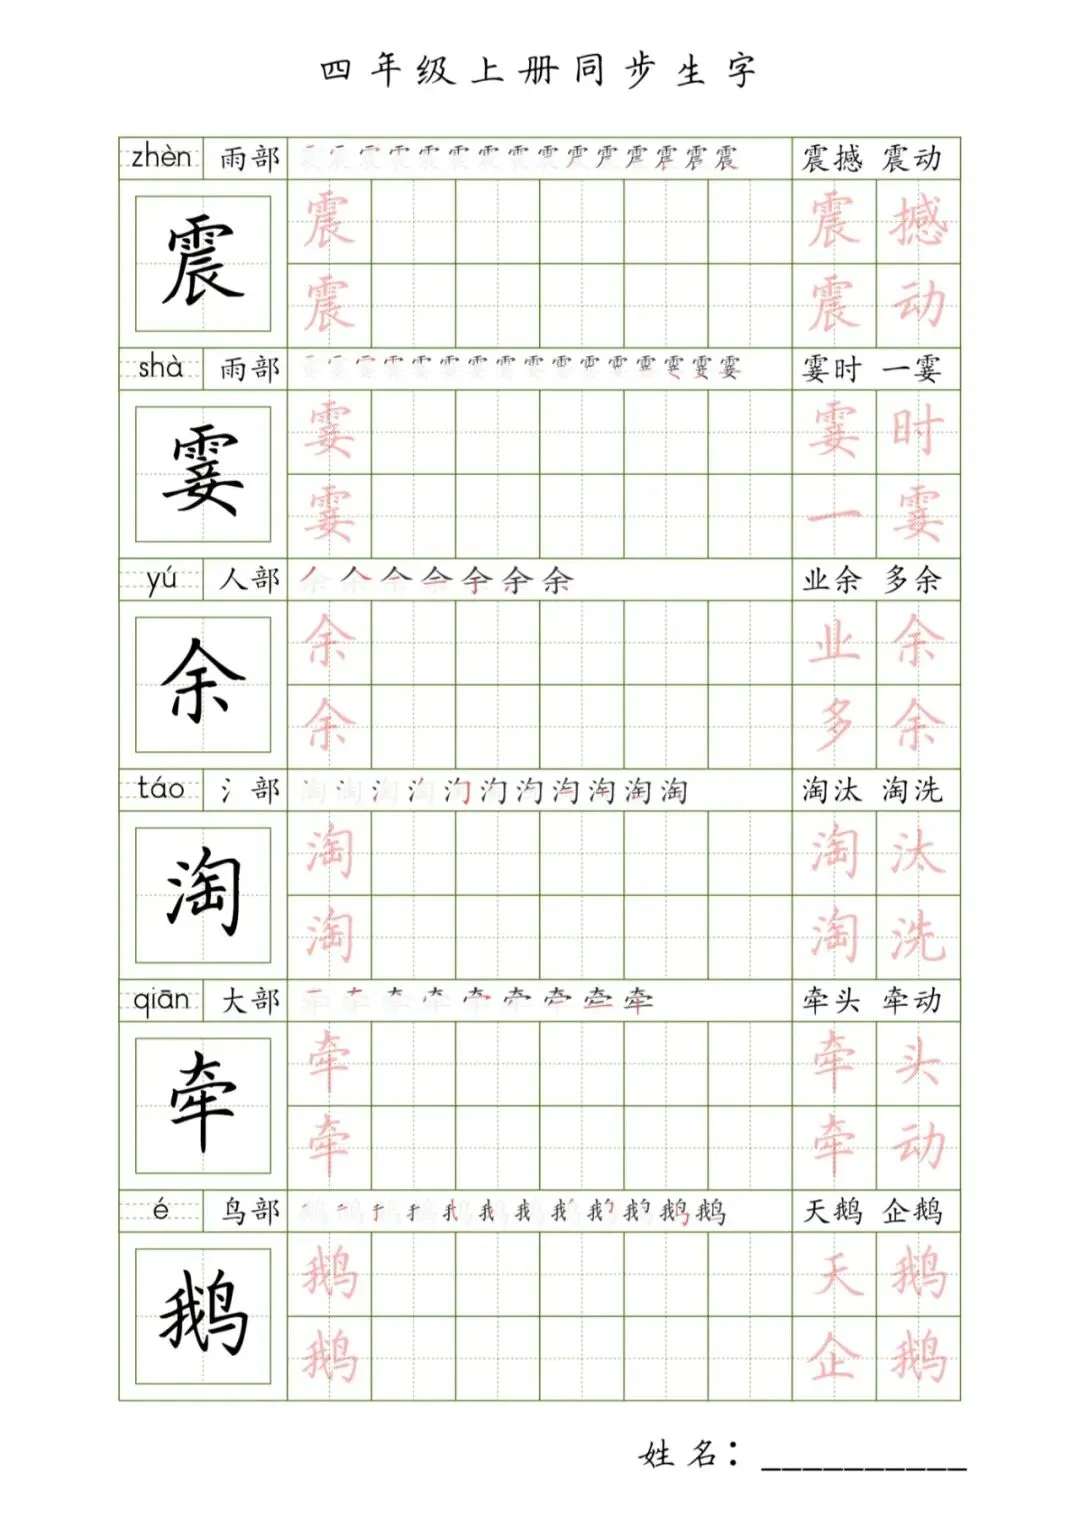 四年级上册同步生字
zhèn 雨部 震撼 震动
震 震 震 撼
震 震 动
shà 雨部 霎时 一霎
霎 霎 霎 时
霎 一 霎
yú 人部 业余 多余
余 余 业 余
余 多 余
táo 氵部 淘汰 淘洗
淘 淘 淘 汰
淘 淘 洗
qiān 大部 牵头 牵动
牵 牵 牵 头
牵 牵 动
é 鸟部 天鹅 企鹅
鹅 鹅 天 鹅
鹅 企 鹅
姓名：__________